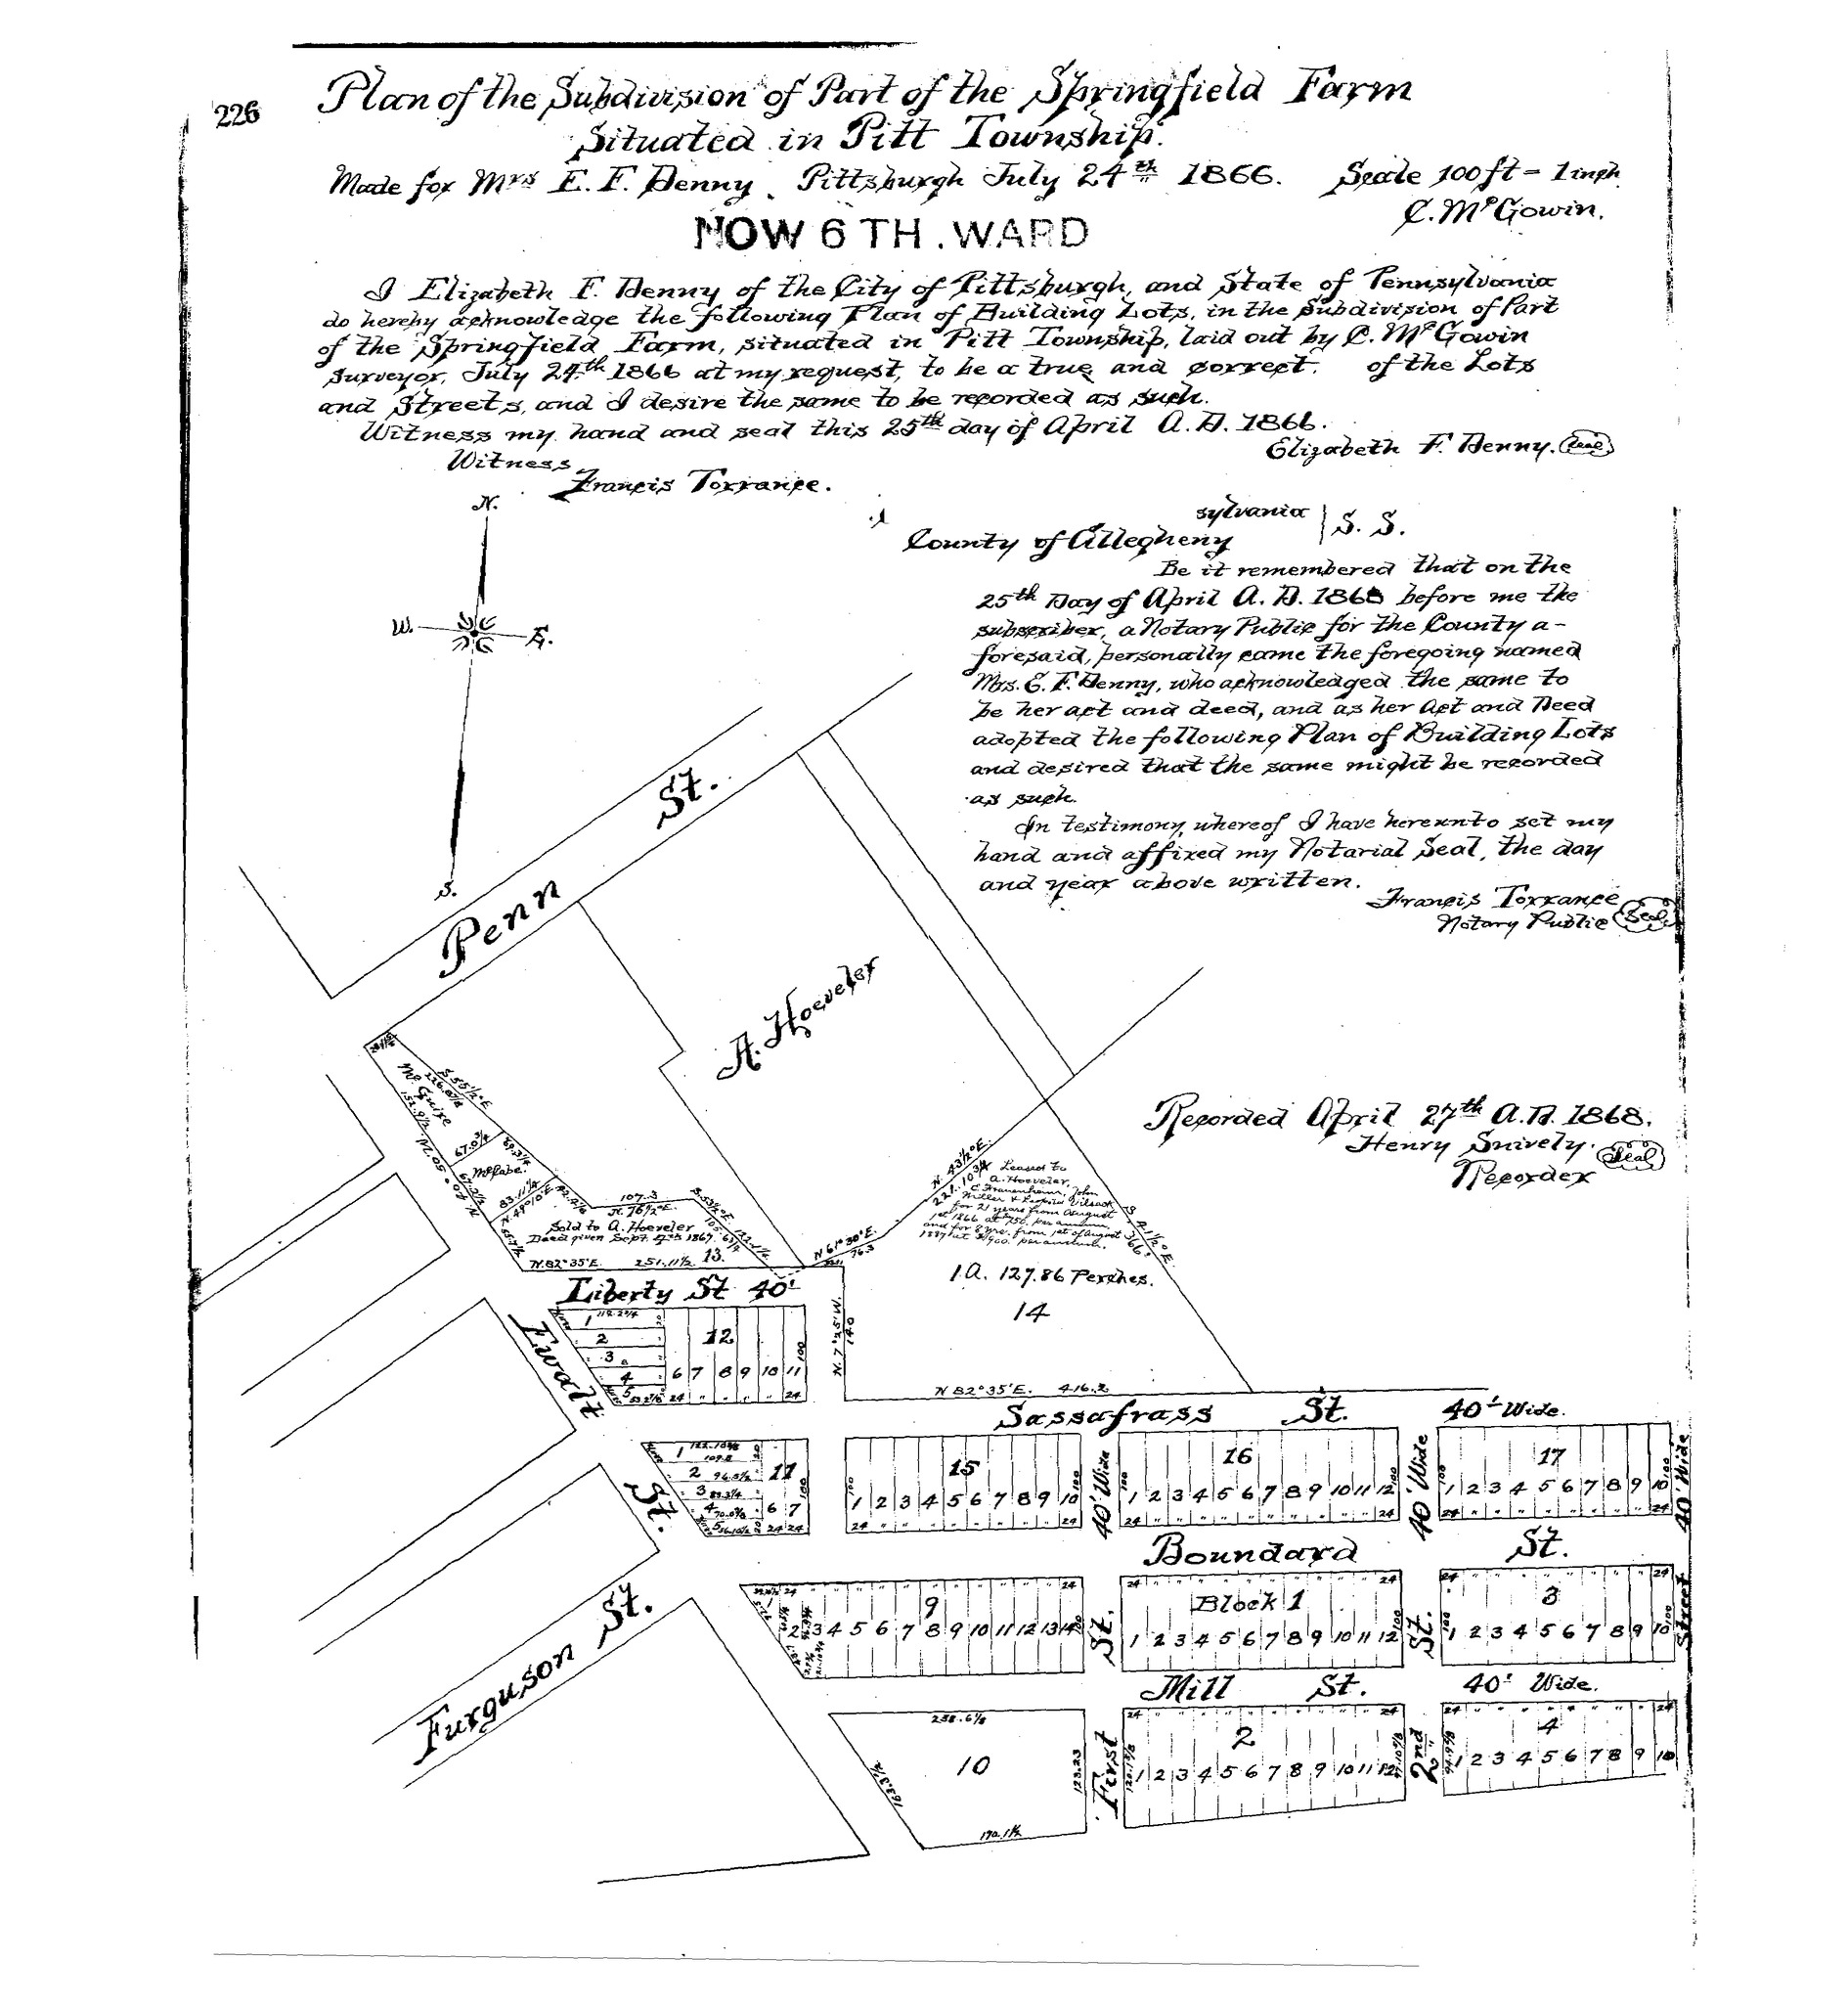 226
Plan of the Subdivision of Part of the Springfield Farm
Situated in Pitt Township.
Made for Mrs E. F. Denny. Pittsburgh July 24th 1866. Scale 100 ft = 1 inch
C. McGowin.
NOW 6 TH. WARD
I Elizabeth F. Denny of the City of Pittsburgh, and State of Pennsylvania
do hereby acknowledge the following Plan of Building Lots, in the Subdivision of Part
of the Springfield Farm, situated in Pitt Township, laid out by C. McGowin
Surveyor, July 24th 1866 at my request, to be a true and correct. of the Lots
and Streets, and I desire the same to be recorded as such.
Witness my hand and seal this 25th day of April A. D. 1866.
Elizabeth F. Denny. Seal
Witness
Francis Torrance.
N.
W.
E.
S.
sylvania | S. S.
County of Allegheny
Be it remembered that on the
25th Day of April A. D. 1868 before me the
subscriber, a Notary Public for the County a-
foresaid, personally came the foregoing named
Mrs. E. F. Denny, who acknowledged the same to
be her act and deed, and as her Act and Deed
adopted the following Plan of Building Lots
and desired that the same might be recorded
as such.
In testimony, whereof I have hereunto set my
hand and affixed my Notarial Seal, the day
and year above written.
Francis Torrance
Notary Public Seal
Recorded April 27th A. D. 1868.
Henry Snively. Seal
Recorder
Penn St.
A. Hoeveler
S 55 1/2° E
McGuire
67.0 3/4
McCabe.
N. 40° 50' W.
83.11 1/4
N. 49° 10' E
107.3
N. 76 1/2° E.
S. 53 1/2° E.
Sold to A. Hoeveler
Deed given Sept. 4th 1867.
13.
N. 82° 35' E. 251.11 1/2
N. 43 1/2° E.
221.10 3/4
N 61° 30' E.
76.3
Leased to
A. Hoeveler,
C. Frauenheim, John
Miller & Leopold Vilsack
for 21 years from August
1st 1866 at $750. per annum,
and for 8 yrs. from 1st of August
1887 at $900. per annum.
S. 41 1/2° E.
366.
1. A. 127.86 Perches.
14
N. 7° 25' W.
140
N 82° 35' E. 416.2
Liberty St 40'
1 2 3 4 5
12
6 7 8 9 10 11
24 " " " " 24
100
Ewalt St.
Sassafrass St. 40' Wide.
1 2 3 4 5
11
6 7
24 24
100
15
1 2 3 4 5 6 7 8 9 10
24 " " " " " " " " 24
100 100
40' Wide
16
1 2 3 4 5 6 7 8 9 10 11 12
24 " " " " " " " " " " 24
100
40' Wide
17
1 2 3 4 5 6 7 8 9 10
24 " " " " " " " " 24
100 100
40' Wide
Boundard St.
9
1 2 3 4 5 6 7 8 9 10 11 12 13 14
24 24
100
Block 1
1 2 3 4 5 6 7 8 9 10 11 12
24 24
100
3
1 2 3 4 5 6 7 8 9 10
24 24
100 100
Street
Mill St. 40' Wide.
Furguson St.
10
258.6 1/8
163.3 1/2
123.23
170.1 1/2
First St.
2
1 2 3 4 5 6 7 8 9 10 11 12
24 24
2nd St.
4
1 2 3 4 5 6 7 8 9 10
24 24